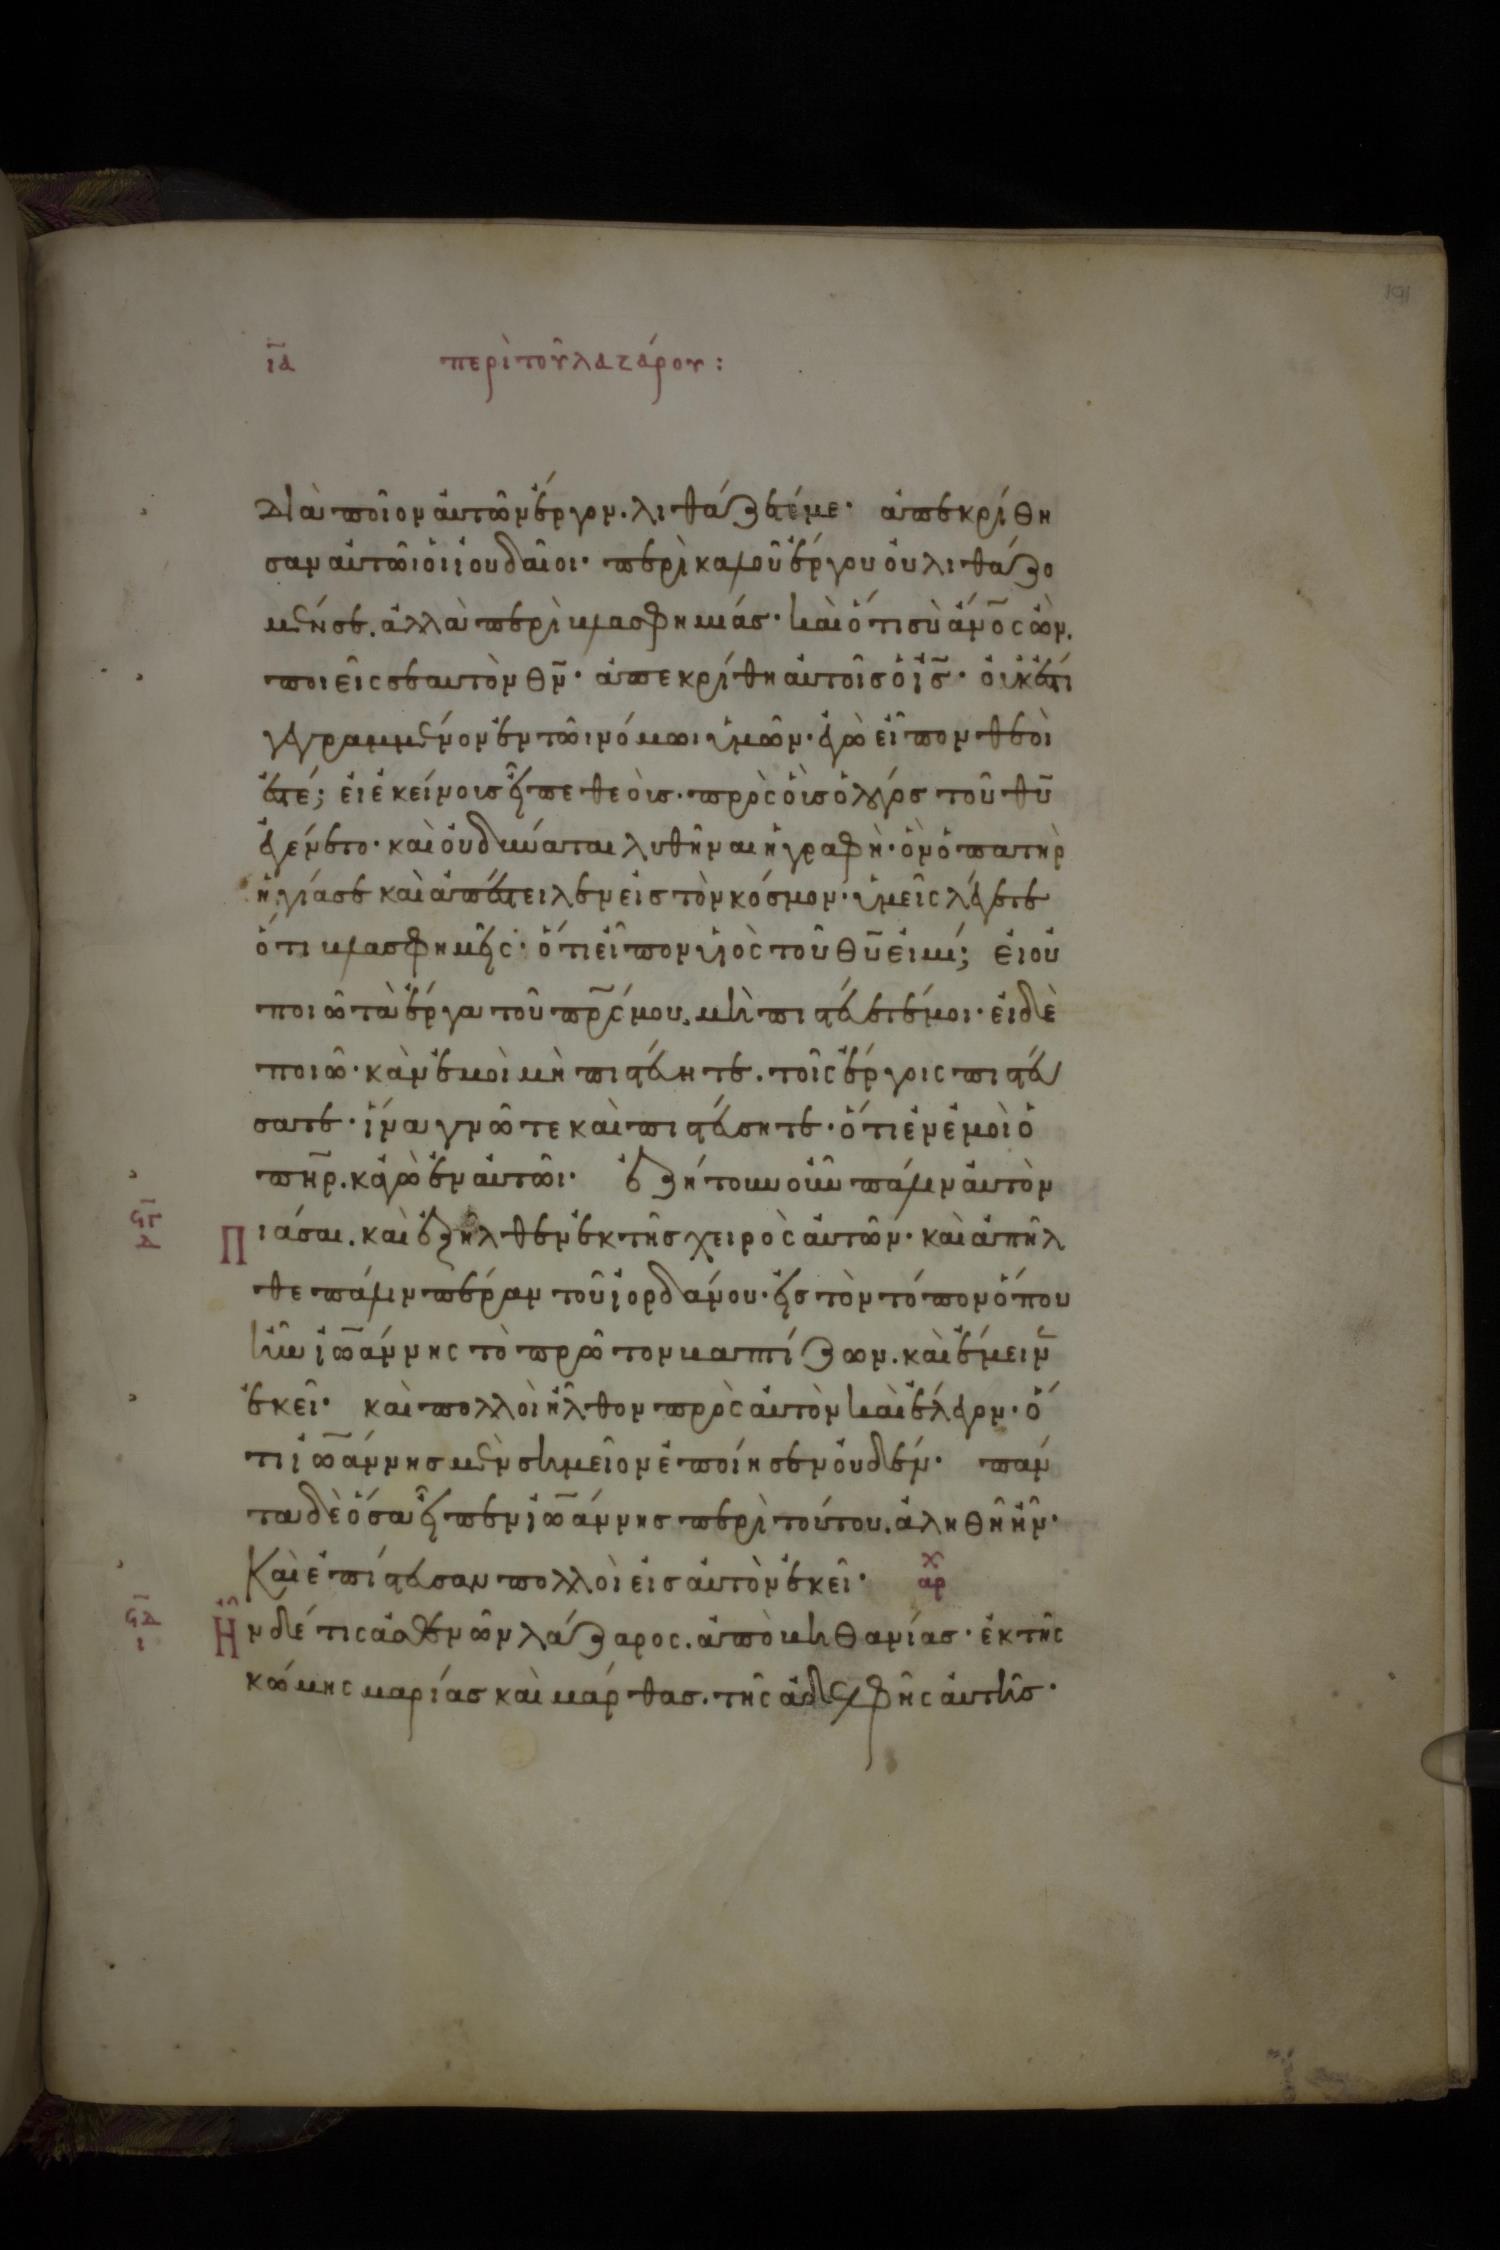 191
ια περὶ τοῦ λαζάρου:
διὰ ποῖον αὐτῶν ἔργον. λιθάζετέ με· ἀπεκρίθη
σαν αὐτῶι οἱ ἰουδαῖοι· περὶ καλοῦ ἔργου οὐ λιθάζο
μέν σε. ἀλλὰ περὶ βλασφημίας· καὶ ὅτι σὺ ἄνος ὢν.
ποιεῖς σεαυτὸν θν· ἀπεκρίθη αὐτοῖς ὁ ις· οὐκ ἔστι
γεγραμμένον ἐν τῶι νόμωι ὑμῶν· ἐγὼ εἶπον θεοί
ἐστέ; εἰ ἐκείνους εἶπε θεοὺς. πρὸς οὓς ὁ λόγος τοῦ θυ
ἐγένετο· καὶ οὐ δύναται λυθῆναι ἡ γραφὴ· ὃν ὁ πατὴρ
ἡγίασε καὶ ἀπέστειλεν εἰς τὸν κόσμον· ὑμεῖς λέγετε
ὅτι βλασφημεῖς· ὅτι εἶπον υἱὸς τοῦ θυ εἰμί; εἰ οὐ
ποιῶ τὰ ἔργα τοῦ πρς μου. μὴ πιστεύετέ μοι· εἰ δὲ
ποιῶ· κὰν ἐμοὶ μὴ πιστεύητε. τοῖς ἔργοις πιστεύ
σατε· ἵνα γνῶτε καὶ πιστεύσητε· ὅτι ἐν ἐμοὶ ὁ
πηρ. κἀγὼ ἐν αὐτῶι· ἐζήτουν οὖν πάλιν αὐτὸν
ϛγ
δ
Πιάσαι. καὶ ἐξῆλθεν ἐκ τῆς χειρὸς αὐτῶν· καὶ ἀπῆλ
θε πάλιν πέραν τοῦ ἰορδάνου· εἰς τὸν τόπον ὅπου
ἦν ἰωάννης τὸ πρῶτον βαπτίζων. καὶ ἔμεινεν
ἐκεῖ· καὶ πολλοὶ ἦλθον πρὸς αὐτὸν καὶ ἔλεγον· ὅ
τι ἰωάννης μὲν σημεῖον ἐποίησεν οὐδέν· πάν
τα δὲ ὅσα εἶπεν ἰωάννης περὶ τούτου. ἀληθῆ ἦν·
Καὶ ἐπίστευσαν πολλοὶ εἰς αὐτὸν ἐκεῖ· αρχ
ϛδ
ι
Ἦν δέ τις ἀσθενῶν λάζαρος. ἀπὸ βηθανίας· ἐκ τῆς
κώμης μαρίας καὶ μάρθας. τῆς ἀδελφῆς αὐτῆς·